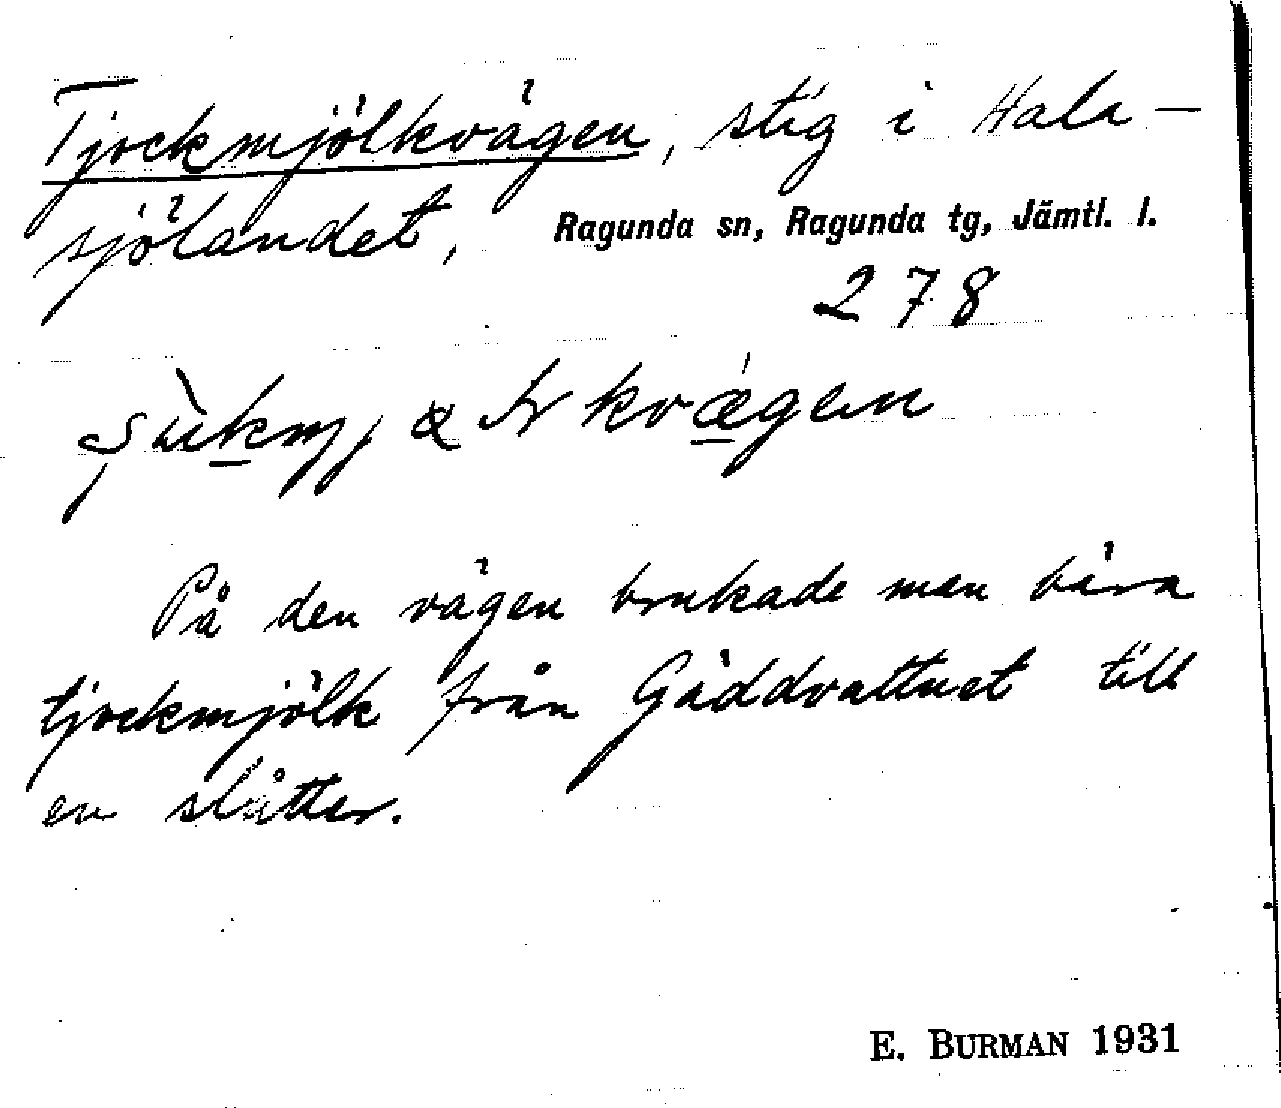 Tjockmjölkvägen, stig i Hala-
sjölandet, Ragunda sn, Ragunda tg, Jämtl. l.
278
På den vägen brukade man bära
tjockmjölk från Gäddvattnet till
en slåtter.
E. BURMAN 1931